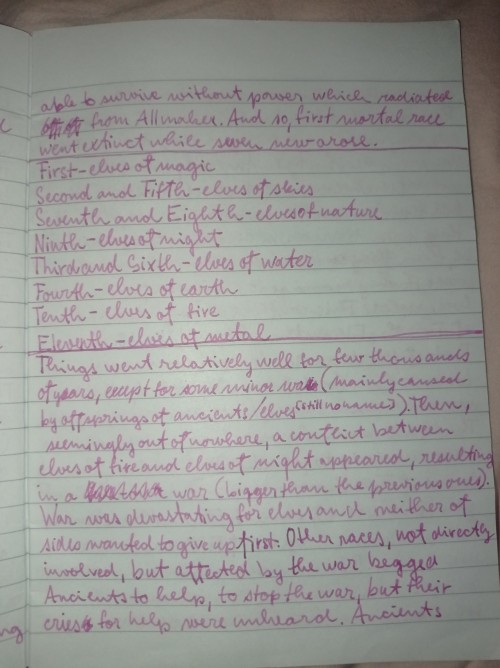 able to survive without power which radiated
from Allmaker. And so, first mortal race
went extinct while seven new arose.
First-elves of magic
Second and Fifth-elves of skies
Seventh and Eighth-elves of nature
Ninth-elves of night
Third and Sixth-elves of water
Fourth-elves of earth
Tenth-elves of fire
Eleventh-elves of metal
Things went relatively well for few thousands
of years, except for some minor wars (mainly caused
by offsprings of ancients/elves (still no names)). Then,
seemingly out of nowhere, a conflict between
elves of fire and elves of night appeared, resulting
in a war (bigger than the previous ones).
War was devastating for elves and neither of
sides wanted to give up first. Other races, not directly
involved, but affected by the war begged
Ancients to help, to stop the war, but their
cries for help were unheard. Ancients
ng